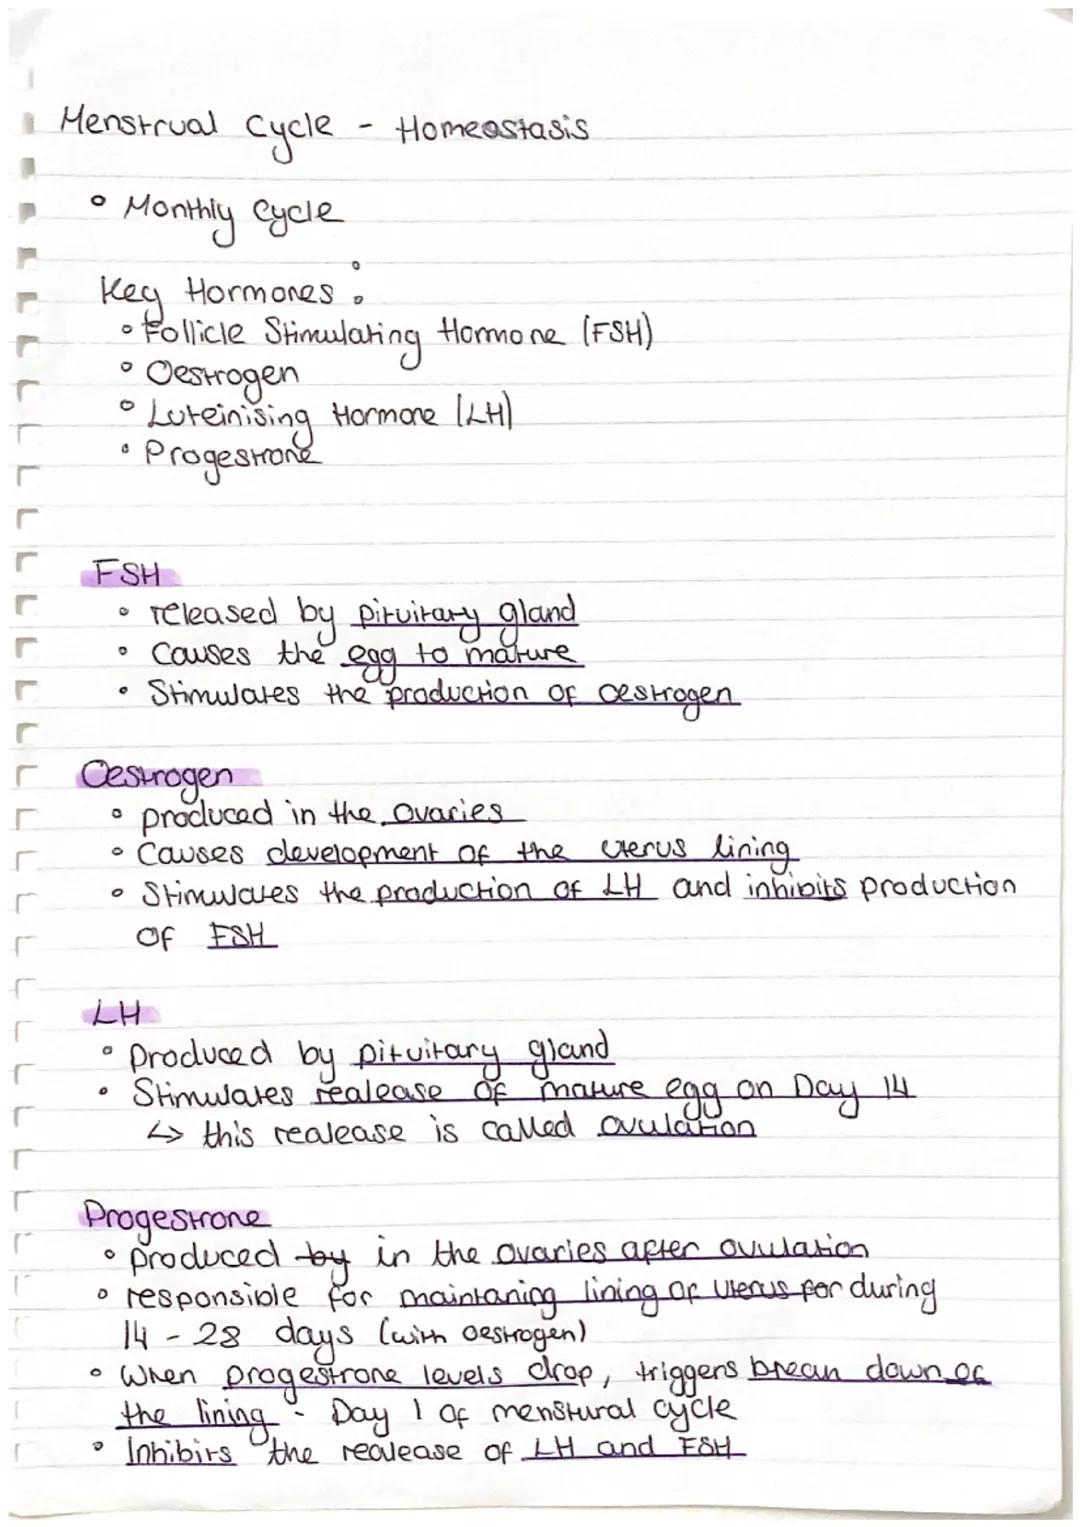 Menstrual Cycle - Homeostasis
• Monthly Cycle
Key Hormones :
• Follicle Stimulating Hormone (FSH)
• Oestrogen
• Luteinising Hormone (LH)
• Progestrone
FSH
• released by pituitary gland
• Causes the egg to mature
• Stimulates the production of oestrogen
Oestrogen
• produced in the ovaries
• Causes development of the uterus lining
• Stimulates the production of LH and inhibits production
of FSH
LH
• Produced by pituitary gland
• Stimulates realease of mature egg on Day 14
↳ this realease is called ovulation
Progestrone
• produced by in the ovaries after ovulation
• responsible for maintaning lining of uterus for during
14 - 28 days (with oestrogen)
• When progestrone levels drop, triggers break down of
the lining - Day 1 of menstural cycle
• Inhibits the realease of LH and FSH